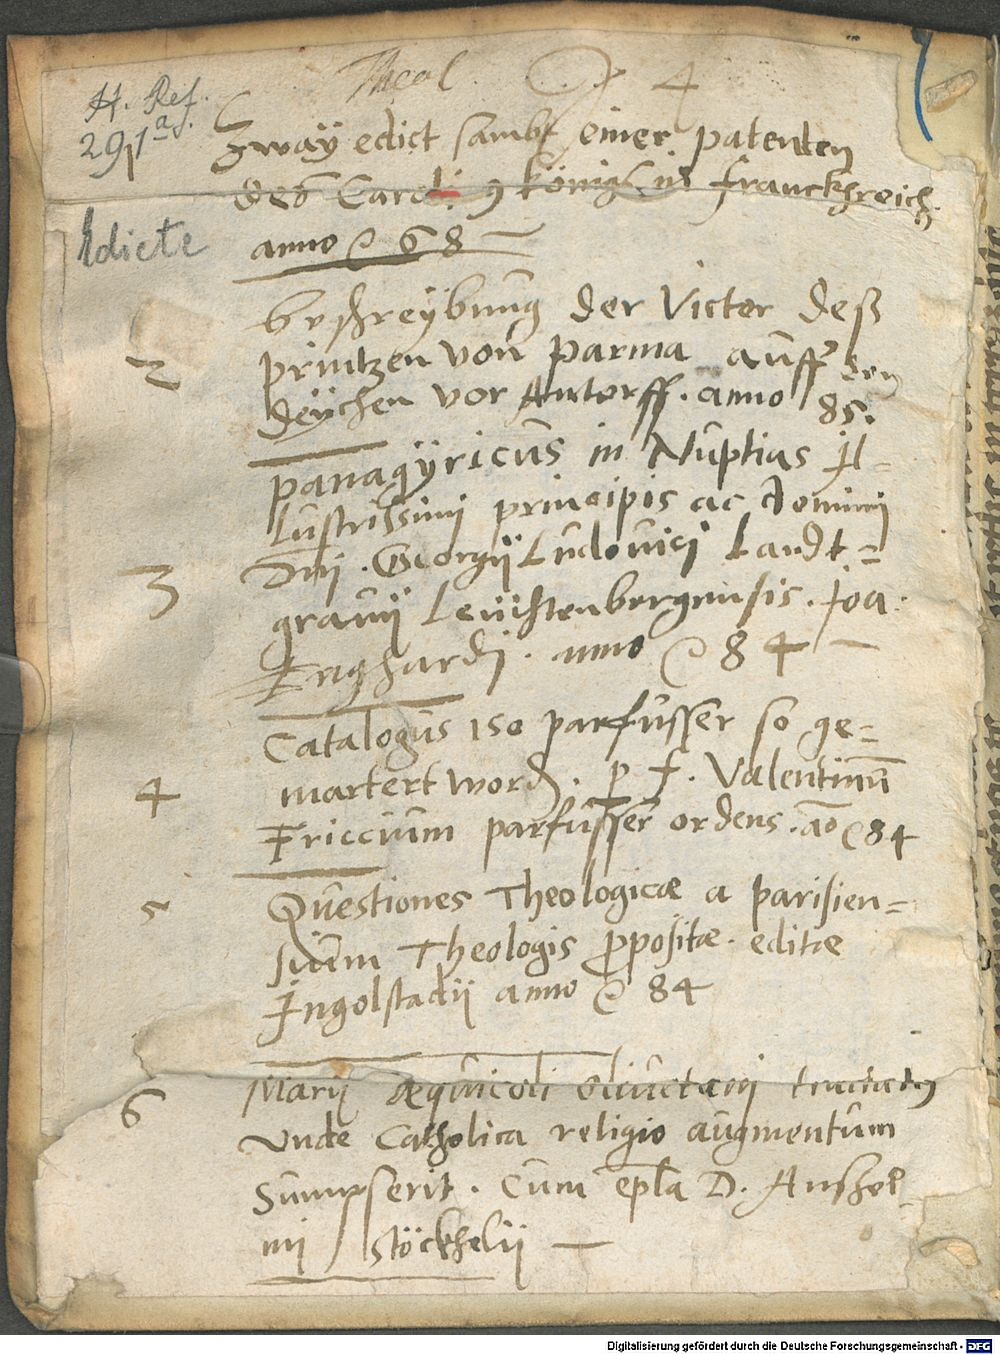 Theol. 4
H. Ref.
291 a.
Zwaÿ edict sambt einer patenten
des Caroli 9 königs in franckhreich.
Edicte
anno 68
bschreÿbung der Victor deß
2
printzen von parma auff den
deÿchen vor Antorff. anno 85.
panagÿricus in Nuptias Il-
lustrissimi principis ac domini
Dnj. Georgij Ludovici Landt-
3
gravij Leüchtenbergensis. Joa.
Enghardj. anno 84
Catalogus 150 parfusser so ge-
martert word. p f. Valentinum
4
Friccium parfusser ordens. ao 84
5
Questiones Theologicæ a parisien-
sium Theologis ppositæ. editæ
Ingolstadij anno 84
Marij æquicoli oliuetani tractatus
6
Unde Catholica religio augmentum
Sumpserit. Cum epla D. Anshel-
mi Stöckhelij
Digitalisierung gefördert durch die Deutsche Forschungsgemeinschaft - DFG